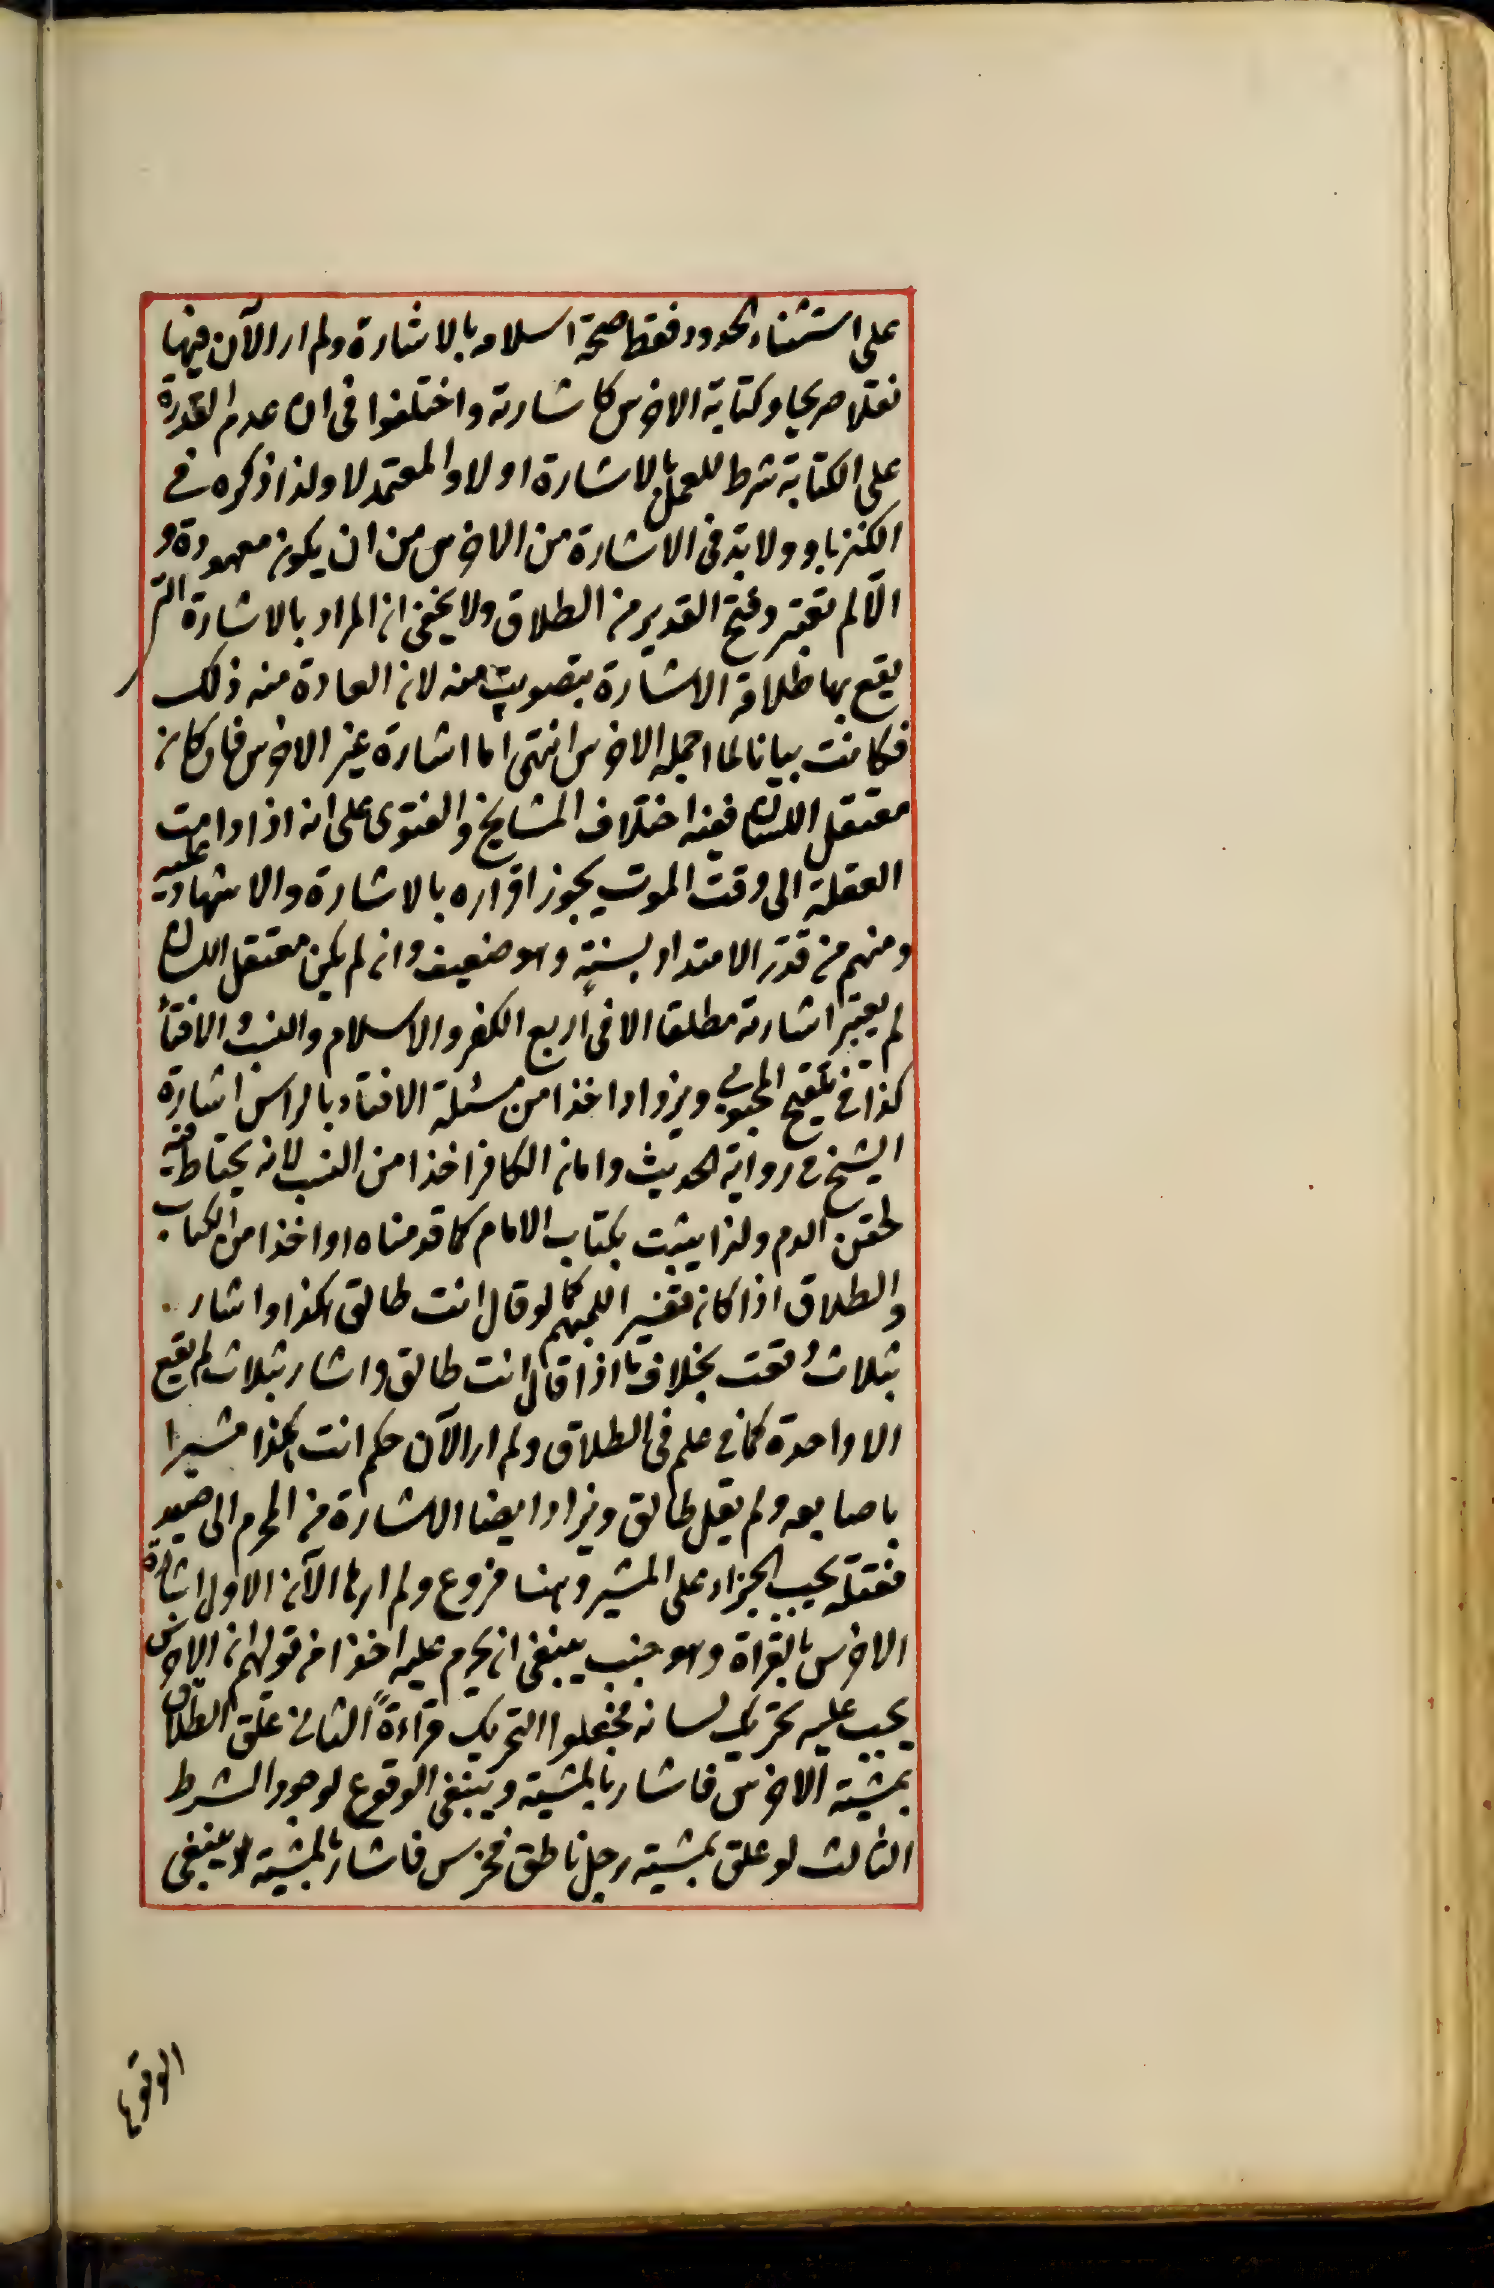 على استثناء الحدود فقط صحة اسلامه بالاشارة ولم ار الآن فيها
نقلا صريحا وكتابة الاخرس كاشارته واختلفوا فى ان عدم القدرة
على الكتابة شرط للعمل بالاشارة او لا والمعتمد لا ولذا ذكره في
الكنز باو ولا بد فى الاشارة من الاخرس من ان يكون معهودة و
الّا لم تعتبر وفتح القدير من الطلاق ولا يخفى ان المراد بالاشارة التى
يقع بها طلاقه الاشارة بتصويت منه لان العادة منه ذلك
فكانت بيانا لما اجمله الاخرس انتهى اما اشارة غير الاخرس فان كان
معتقل اللسان ففيه اختلاف المشايخ والفتوى على انه اذا دامت
العقلة الى وقت الموت يجوز اقراره بالاشارة والاشهاد عليه
ومنهم من قدّر الامتداد بسنةٍ وهو ضعيف وان لم يكن معتقل اللسان
لم يعتبر اشارته مطلقا الا فى اربع الكفر والاسلام والنسب والافتاء
كذا في تلقيح المحبوبي ويزاد اخذا من مسئلة الافتاء بالراس اشارة
الشيخ في رواية الحديث وامان الكافر اخذا من النسب لانه يحتاط فيه
لحقن الدم ولذا يثبت بكتاب الامام كما قدمناه او اخذا من الكتاب
والطلاق اذا كان تفسير المبهم كما لو قال انت طالق هكذا واشار
بثلاث وقعت بخلاف ما اذا قال انت طالق واشار بثلاث لم يقع
الا واحدة كما في علم فى الطلاق ولم ار الآن حكم انت هكذا مشيرا
باصابعه ولم يقل طالق ويزاد ايضا الاشارة من المحرم الى صيد
فقتله يجب الجزاء على المشير وهنا فروع ولم ارها الآن الاول اشارة
الاخرس بالقراة وهو جنب ينبغى ان يحرم عليه اخذا من قولهم ان الاخرس
يجب عليه تحريك لسانه فجعلوا التحريك قراءةً الثاني علق الطلاق
بمشية الاخرس فاشار بالمشية وينبغى الوقوع لوجود الشرط
الثالث لو علق بمشية رجل ناطق فخرس فاشار بالمشية ينبغى
الوقوع